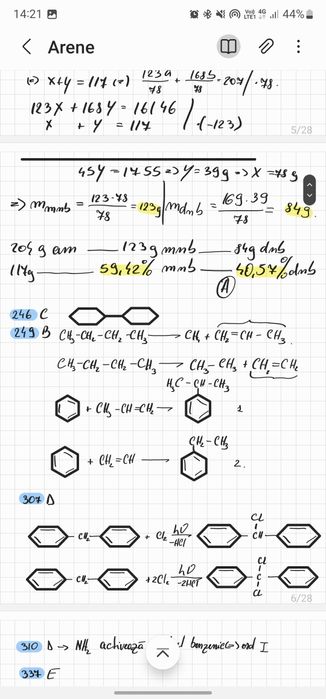 14:21 44%
Arene
(=) x+y = 117 (=) 123x/78 + 168y/78 = 207 / ·78
123x + 168y = 16146 /
x + y = 117 / (-123)
5/28
45y = 1755 => y = 39g => x = 78g
=> m mnb = 123·78/78 = 123g | m dnb = 169·39/78 = 84g.
204g am —— 123g mnb —— 84g dnb
117g —— 59,42% mnb —— 40,57% dnb
A
246 C
249 B CH3-CH2-CH2-CH3 → CH4 + CH2=CH-CH3
CH3-CH2-CH2-CH3 → CH3-CH3 + CH2=CH2
H3C-CH-CH3
+ CH3-CH=CH2 → 1
CH2-CH3
+ CH2=CH → 2.
307 D
-CH2- + Cl2 hν/-HCl → CL -CH-
-CH2- + 2Cl2 hν/-2HCl → CL -C- CL
6/28
310 D → NH2 activează benzenic(=) ord I
337 E